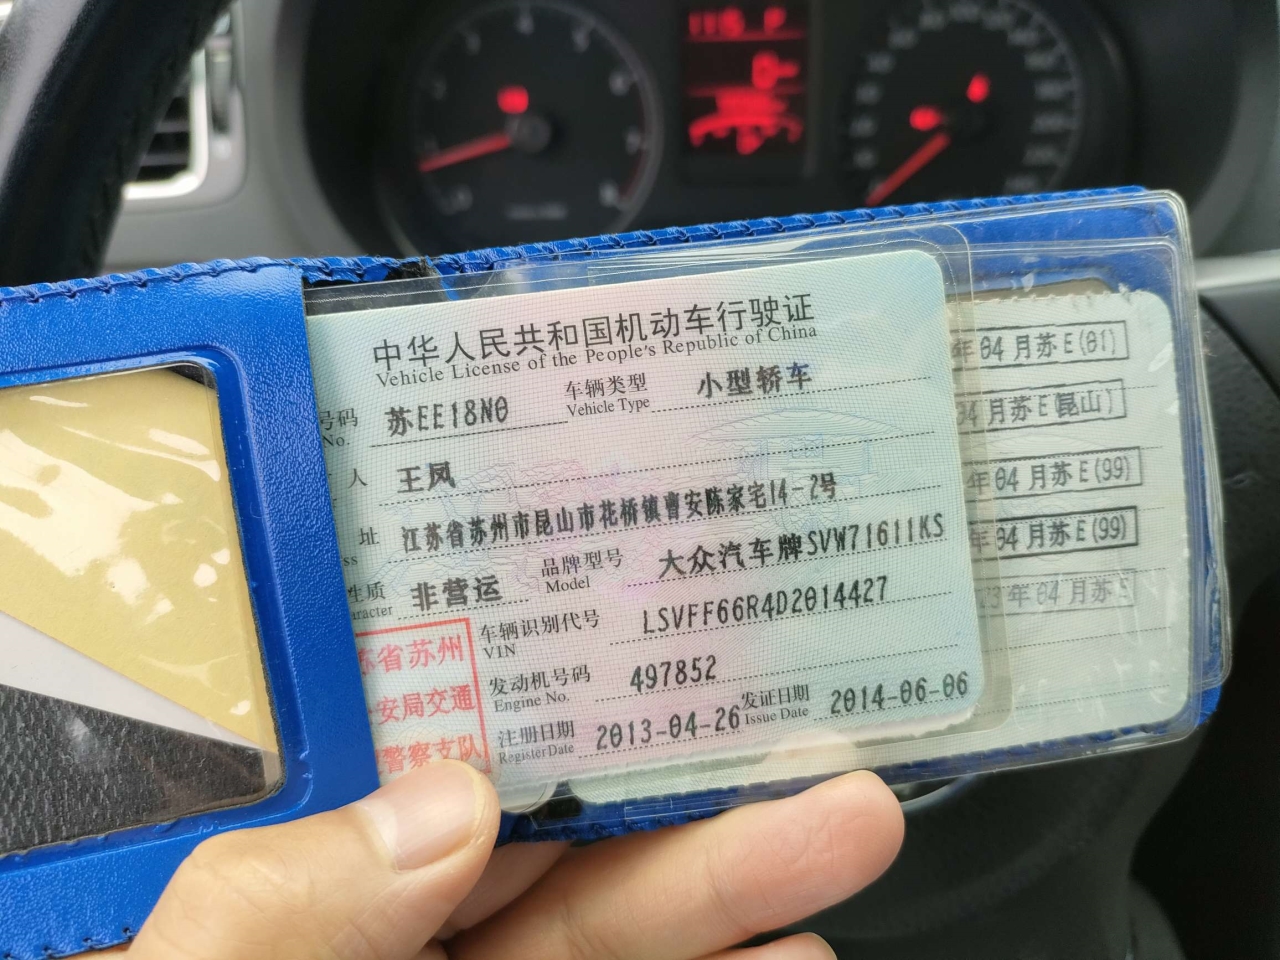 中华人民共和国机动车行驶证
Vehicle License of the People's Republic of China
号码 苏EE18N0 车辆类型 小型轿车
No. Vehicle Type
人 王凤
址 江苏省苏州市昆山市花桥镇曹安陈家宅14-2号
ss
性质 非营运 品牌型号 大众汽车牌SVW71611KS
aracter Model
省苏州
安局交通
警察支队
车辆识别代号 LSVFF66R4D2014427
VIN
发动机号码 497852
Engine No.
注册日期 2013-04-26 发证日期 2014-06-06
Register Date Issue Date
年04月苏E(01)
04月苏E(昆山)
年04月苏E(99)
年04月苏E(99)
年04月苏E